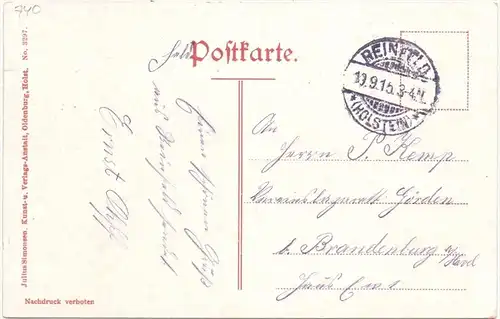 740
Postkarte.
REINFELD
19.9.15.3-4N.
*(HOLSTEIN)*
An
Herrn P. Kemp
Görden
b. Brandenburg a/Havel
Haus E.w.1
Einen schönen Gruß
aus Reinfeld sendet
Ernst
Julius Simonsen, Kunst- u. Verlags-Anstalt, Oldenburg, Holst. No. 3297.
Nachdruck verboten